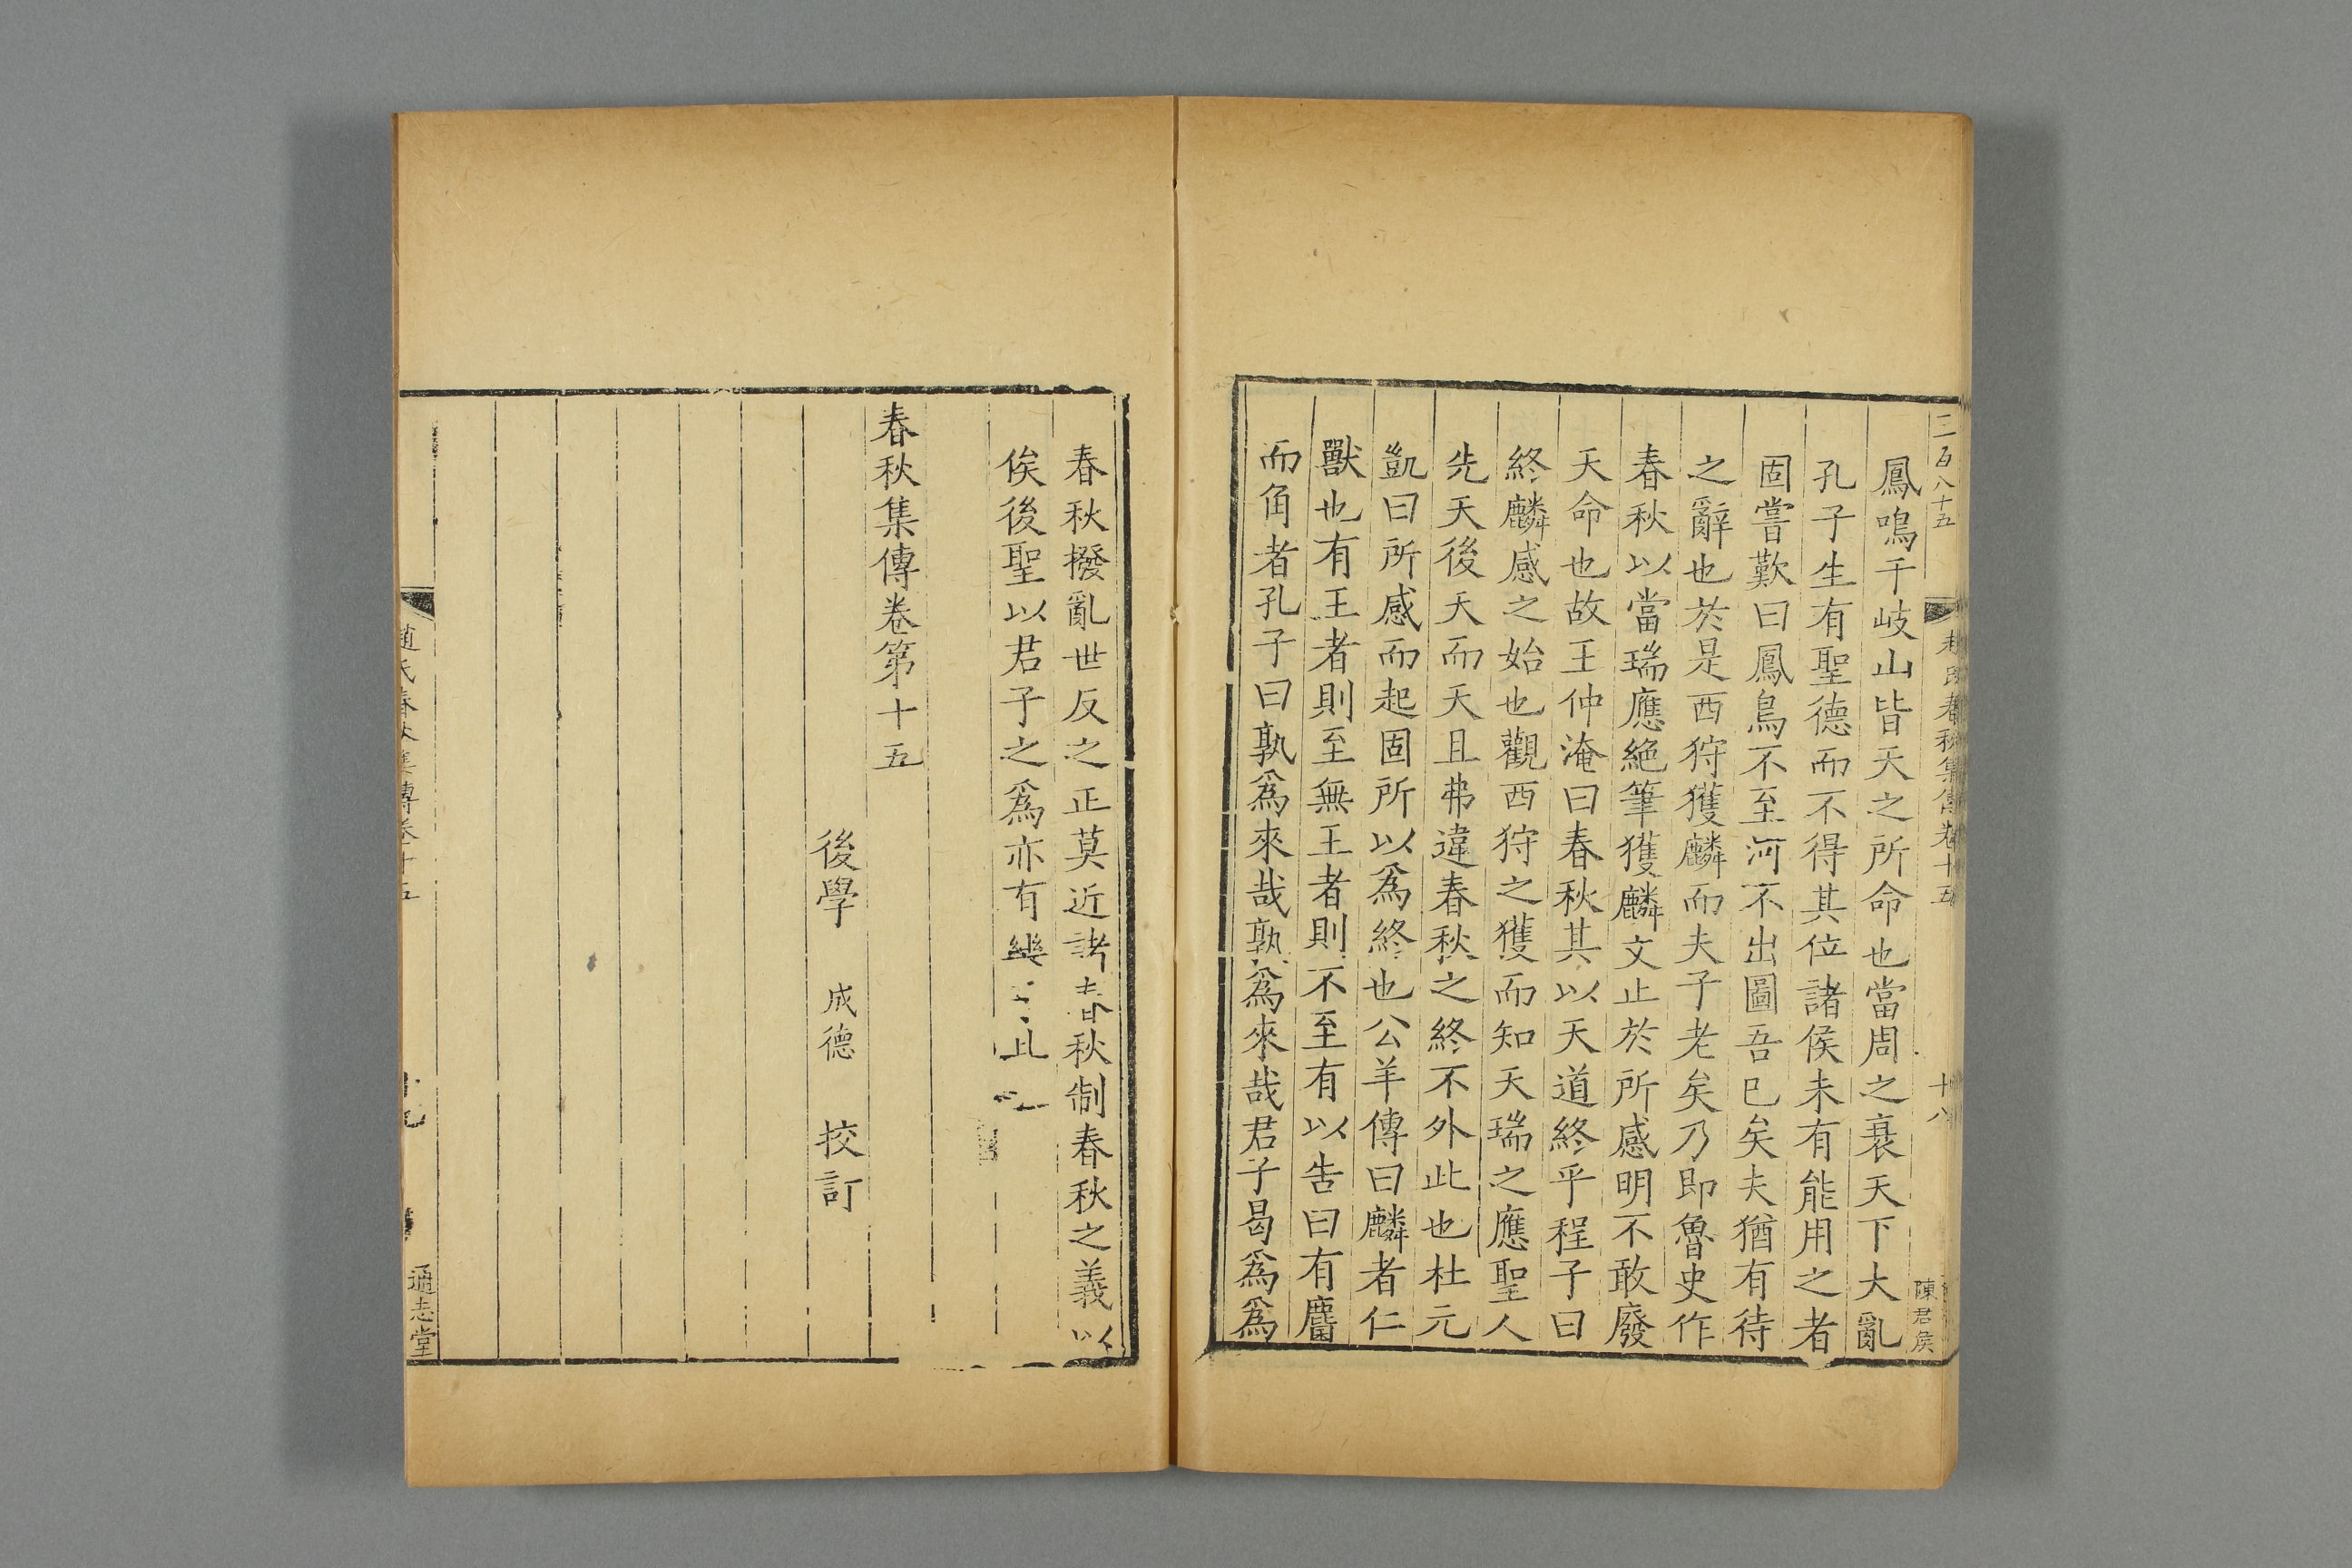 三百八十五
春秋集傳卷十五
十八
陳君侯
鳳鳴于岐山皆天之所命也當周之衰天下大亂
孔子生有聖德而不得其位諸侯未有能用之者
固嘗歎曰鳳鳥不至河不出圖吾已矣夫猶有待
之辭也於是西狩獲麟而夫子老矣乃即魯史作
春秋以當瑞應絕筆獲麟文止於所感明不敢廢
天命也故王仲淹曰春秋其以天道終乎程子曰
終麟感之始也觀西狩之獲而知天瑞之應聖人
先天後天而天且弗違春秋之終不外此也杜元
凱曰所感而起固所以為終也公羊傳曰麟者仁
獸也有王者則至無王者則不至有以告曰有麏
而角者孔子曰孰為來哉孰為來哉君子曷為為
春秋撥亂世反之正莫近諸春秋制春秋之義以
俟後聖以君子之為亦有樂 此
春秋集傳卷第十五
後學 成德 挍訂
趙氏春秋集傳卷十五
通志堂